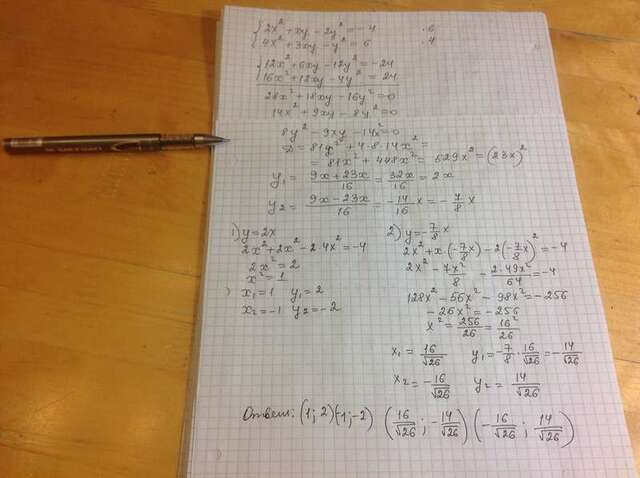 {2x² + xy - 2y² = -4 ·6
{4x² + 3xy - y² = 6 ·4
{12x² + 6xy - 12y² = -24
{16x² + 12xy - 4y² = 24
28x² + 18xy - 16y² = 0
14x² + 9xy - 8y² = 0
8y² - 9xy - 14x² = 0
D = 81y² + 4·8·14x² =
= 81x² + 448x² = 529x² = (23x)²
y₁ = (9x + 23x)/16 = 32x/16 = 2x
y₂ = (9x - 23x)/16 = -14/16 x = -7/8 x
1) y = 2x
2x² + 2x² - 2·4x² = -4
2x² = 2
x² = 1
) x₁ = 1 y₁ = 2
x₂ = -1 y₂ = -2
2) y = -7/8 x
2x² + x·(-7/8 x) - 2(-7/8 x)² = -4
2x² - 7x²/8 - 2·49x²/64 = -4
128x² - 56x² - 98x² = -256
-26x² = -256
x² = 256/26 = 16²/26
x₁ = 16/√26 y₁ = -7/8 · 16/√26 = -14/√26
x₂ = -16/√26 y₂ = 14/√26
Ответ: (1; 2) (-1; -2) (16/√26 ; -14/√26) (-16/√26 ; 14/√26)